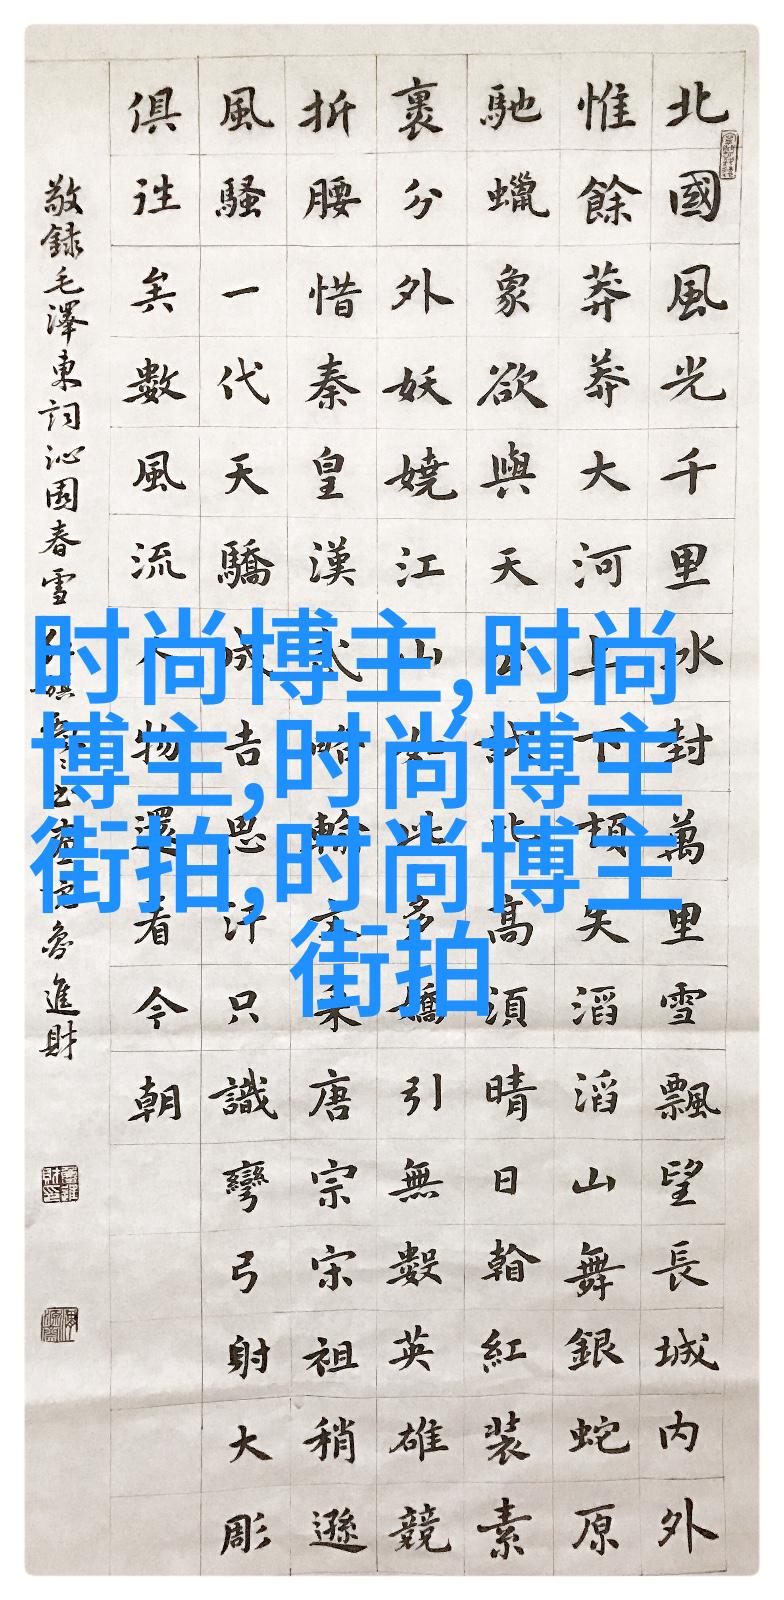 北國風光千里氷封萬里雪飄望長城内外
惟餘莽莽大河上下頓失滔滔山舞銀蛇原
馳蠟象欲與天公試比高須晴日看紅裝素
裹分外妖嬈江山如此多嬌引無數英雄競
折腰惜秦皇漢武略輸文采唐宗宋祖稍遜
風騷一代天驕成吉思汗只識彎弓射大彫
俱往矣數風流人物還看今朝
敬録毛澤東詞沁園春雪魯進財
时尚博主,时尚
博主,时尚博主
街拍,时尚博主
街拍